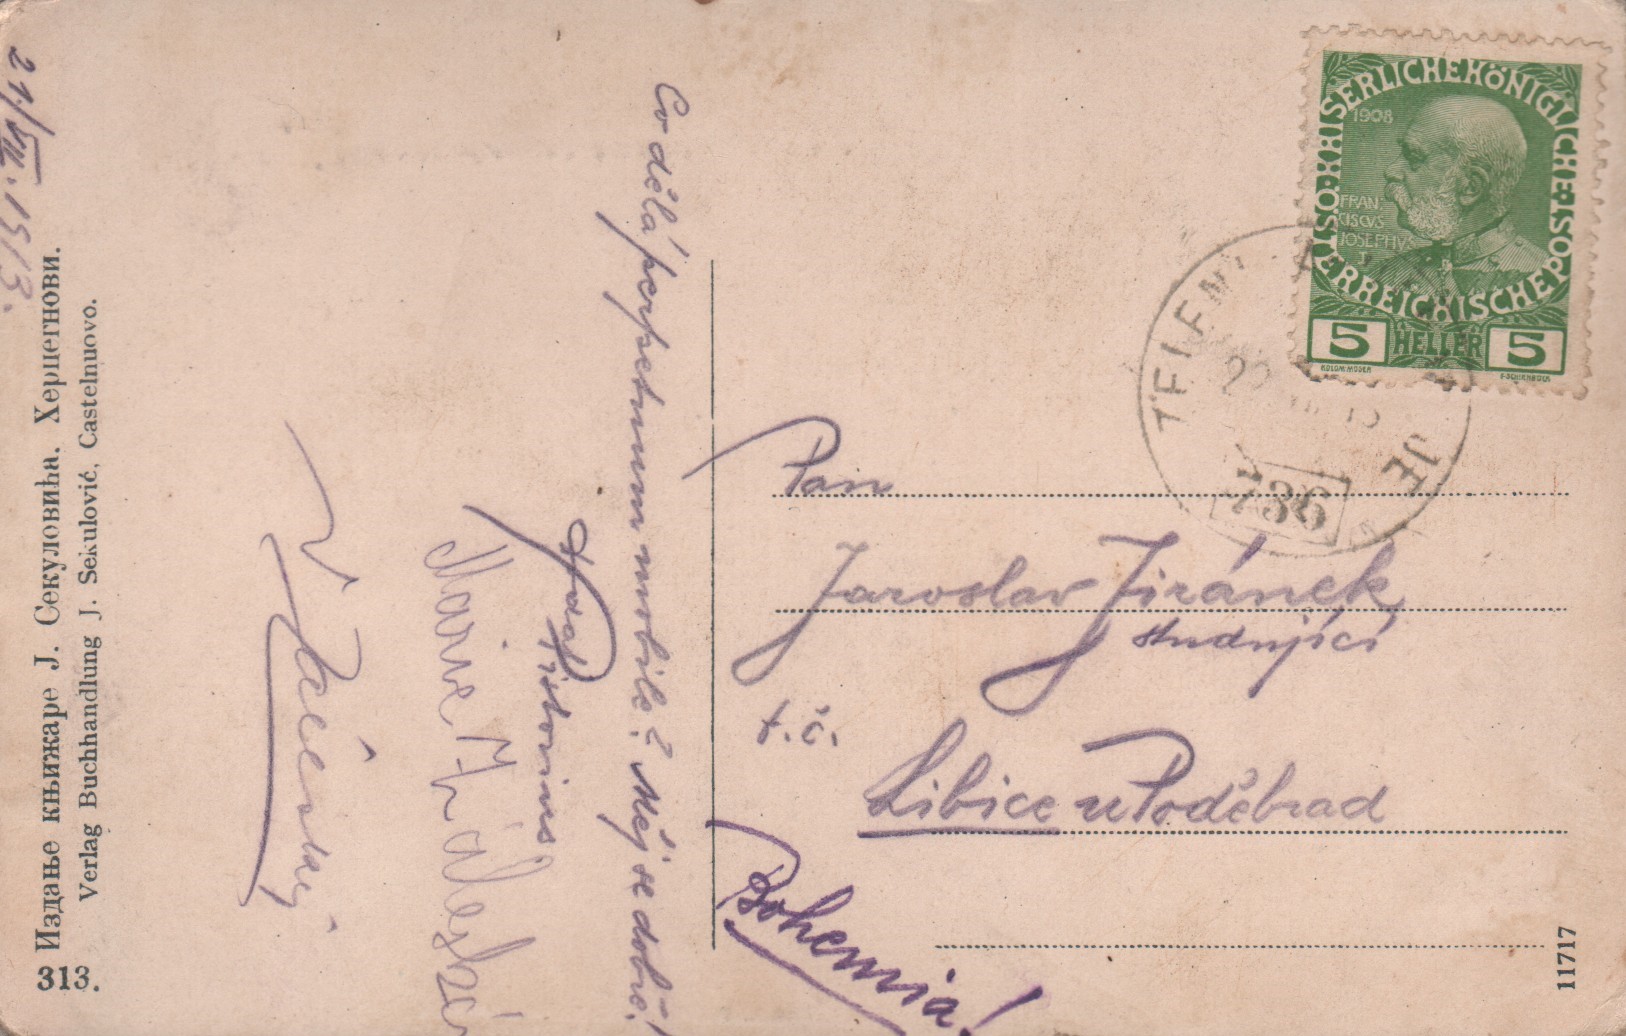 21./VII.1913.
Издање књижаре Ј. Секуловића. Херцегнови.
Verlag Buchhandlung J. Sekulović, Castelnuovo.
313.
Co dělá perpetuum mobile? Měj se dobře!
Pistorius
Marie
KAISERLICHE KÖNIGLICHE ÖSTERREICHISCHE POST
1908
FRAN
CISCVS
JOSEPHVS
I
5 HELLER 5
KOLOM. MOSER
F. SCHIRNBÖCK
22
JE
736
Pan
Jaroslav Jiránek
studující
t.č.
Libice u Poděbrad
Bohemia!
11717